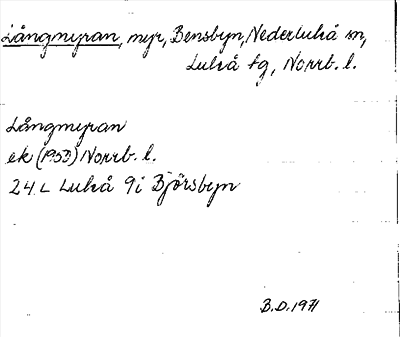 Långmyran, myr, Bensbyn, Nederluleå sn,
Luleå tg, Norrb. l.
Långmyran
ek (1953) Norrb. l.
24 L Luleå 9i Björsbyn
B.D. 1971